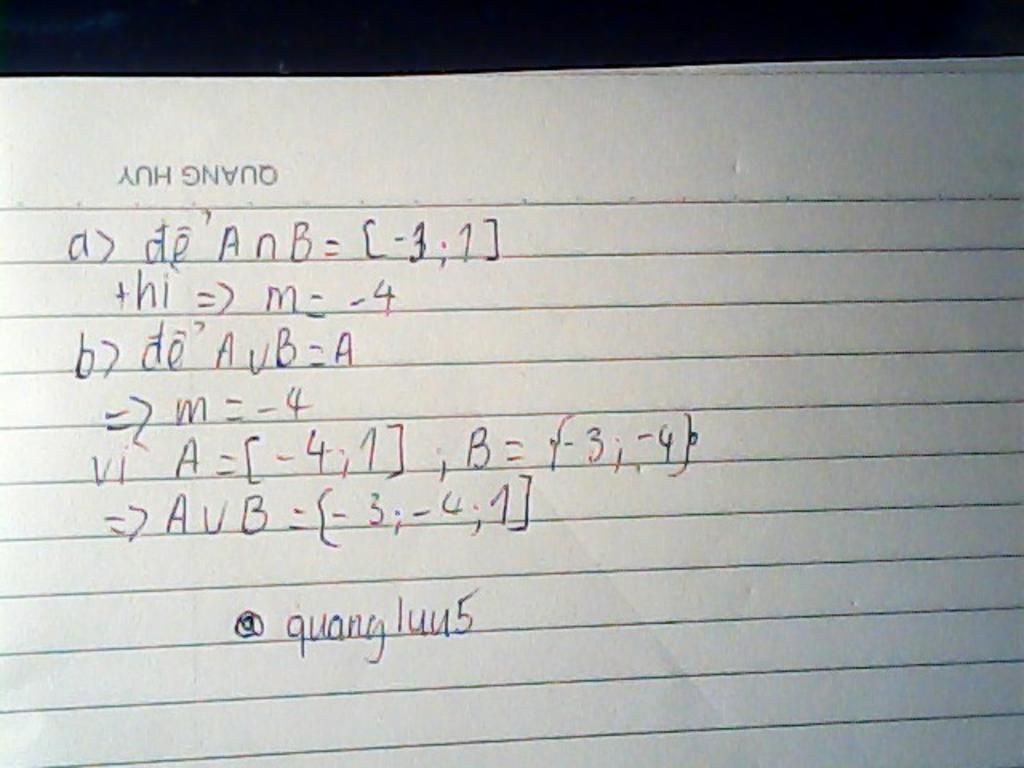 QUANG HUY
a) để A ∩ B = [-3; 1]
thì => m = -4
b) để A ∪ B = A
=> m = -4
vì A = [-4; 1] ; B = {-3; -4}
=> A ∪ B = [-3; -4; 1]
@ quangluu5